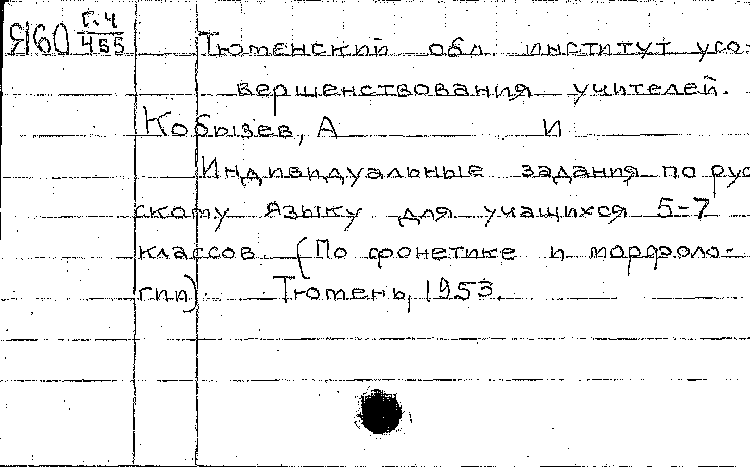 Я60 Г.4
455
Тюменский обл. институт усо-
вершенствования учителей.
Кобызев, А И
Индивидуальные задания по рус
скому языку для учащихся 5-7
классов (По фонетике и морфоло-
гии) Тюмень, 1953.